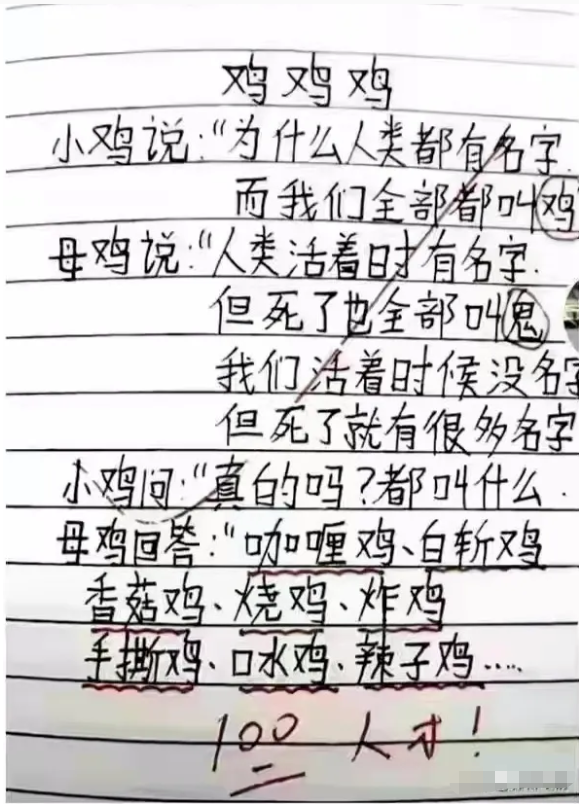 鸡鸡鸡
小鸡说:“为什么人类都有名字
而我们全部都叫鸡
母鸡说:“人类活着时有名字.
但死了也全部叫鬼
我们活着时候没名字
但死了就有很多名字
小鸡问:“真的吗?都叫什么.
母鸡回答:“咖喱鸡、白斩鸡
香菇鸡、烧鸡、炸鸡
手撕鸡、口水鸡、辣子鸡.....
100 人才!